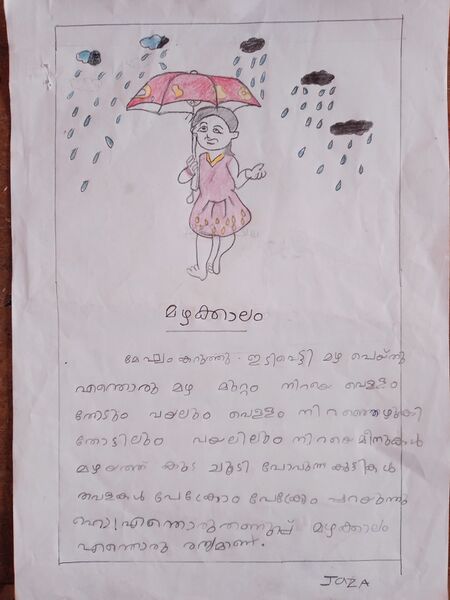 മഴക്കാലം
മേഘം കറുത്തു. ഇടിവെട്ടി മഴ പെയ്തു
എന്തൊരു മഴ മുറ്റം നിറയെ വെള്ളം
തോടും വയലും വെള്ളം നിറഞ്ഞൊഴുകി
തോട്ടിലും വയലിലും നിറയെ മീനുകൾ
മഴയത്ത് കുട ചൂടി പോവുന്ന കുട്ടികൾ
തവളകൾ പേക്രോം പേക്രോം പറയുന്നു
ഹാ! എന്തൊരു തണുപ്പ് മഴക്കാലം
എന്തൊരു രസ്യമാണ്.
JAZA